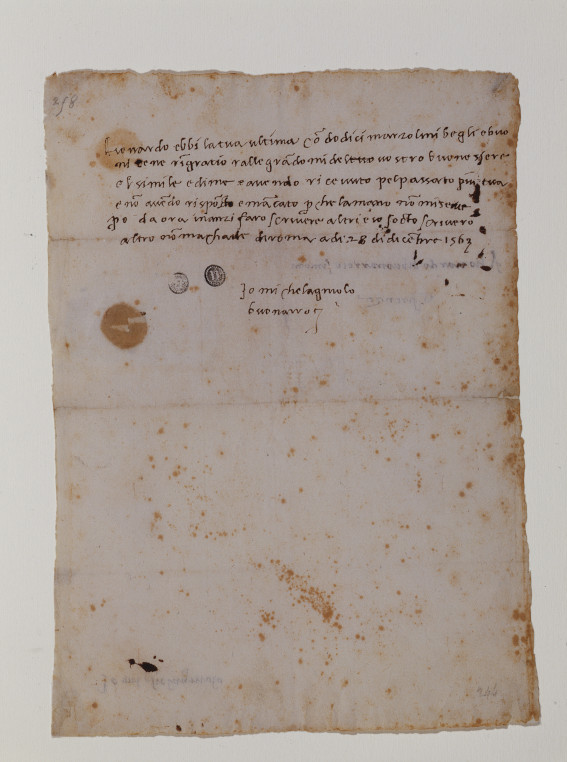 Lionardo ebbi la tua ultima cō dodici marzolini begli e buo
ni te ne rīgratio rallegrādomi del tuo vostro buone ssere
el simile e di me e avendo ricevuto pel passato più tua
e nō avēdo rispōsto e mācato p che la mano nō mi serve
po da ora inanzi faro scrivere altri e io sotto scriverò
altro nō mi achade di roma a di 28 di dicēbre 1563
Io michelagniolo
buonarroti